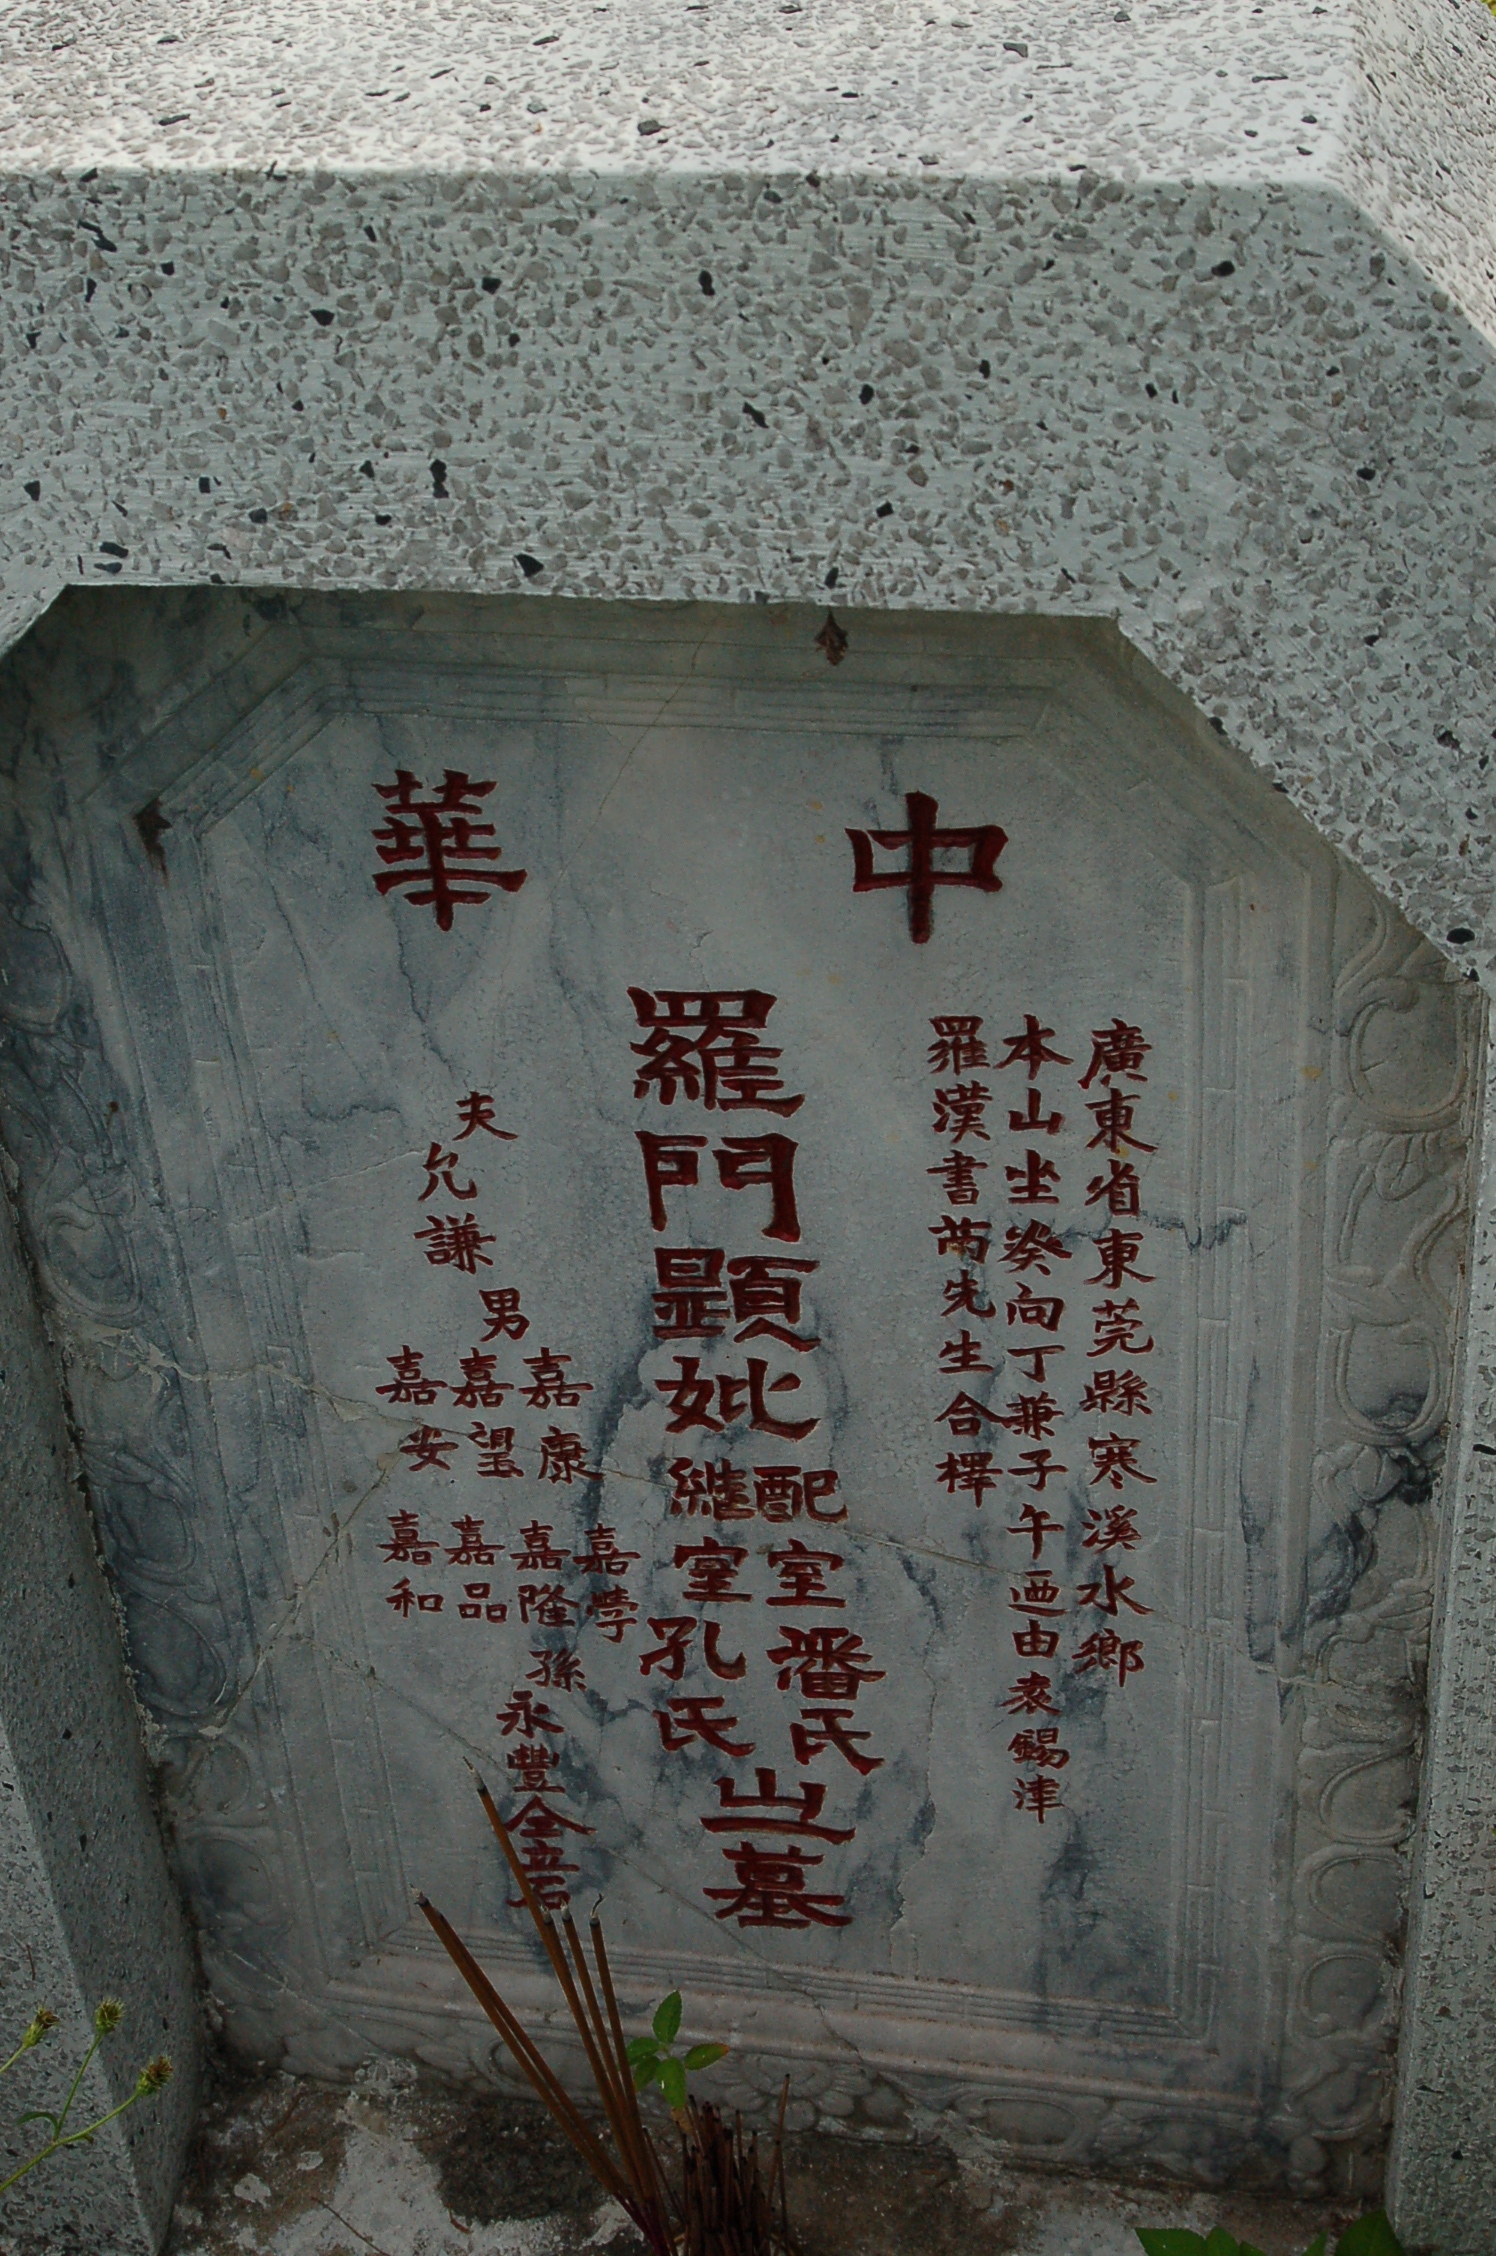 中華
廣東省東莞縣寒溪水鄉
本山坐癸向丁兼子午迺由袁錫津
羅漢書芮先生合擇
羅門顯妣
配室潘氏
繼室孔氏
之墓
夫允謙
男
嘉康
嘉望
嘉安
嘉學
嘉隆
嘉品
嘉和
孫永豐仝立石